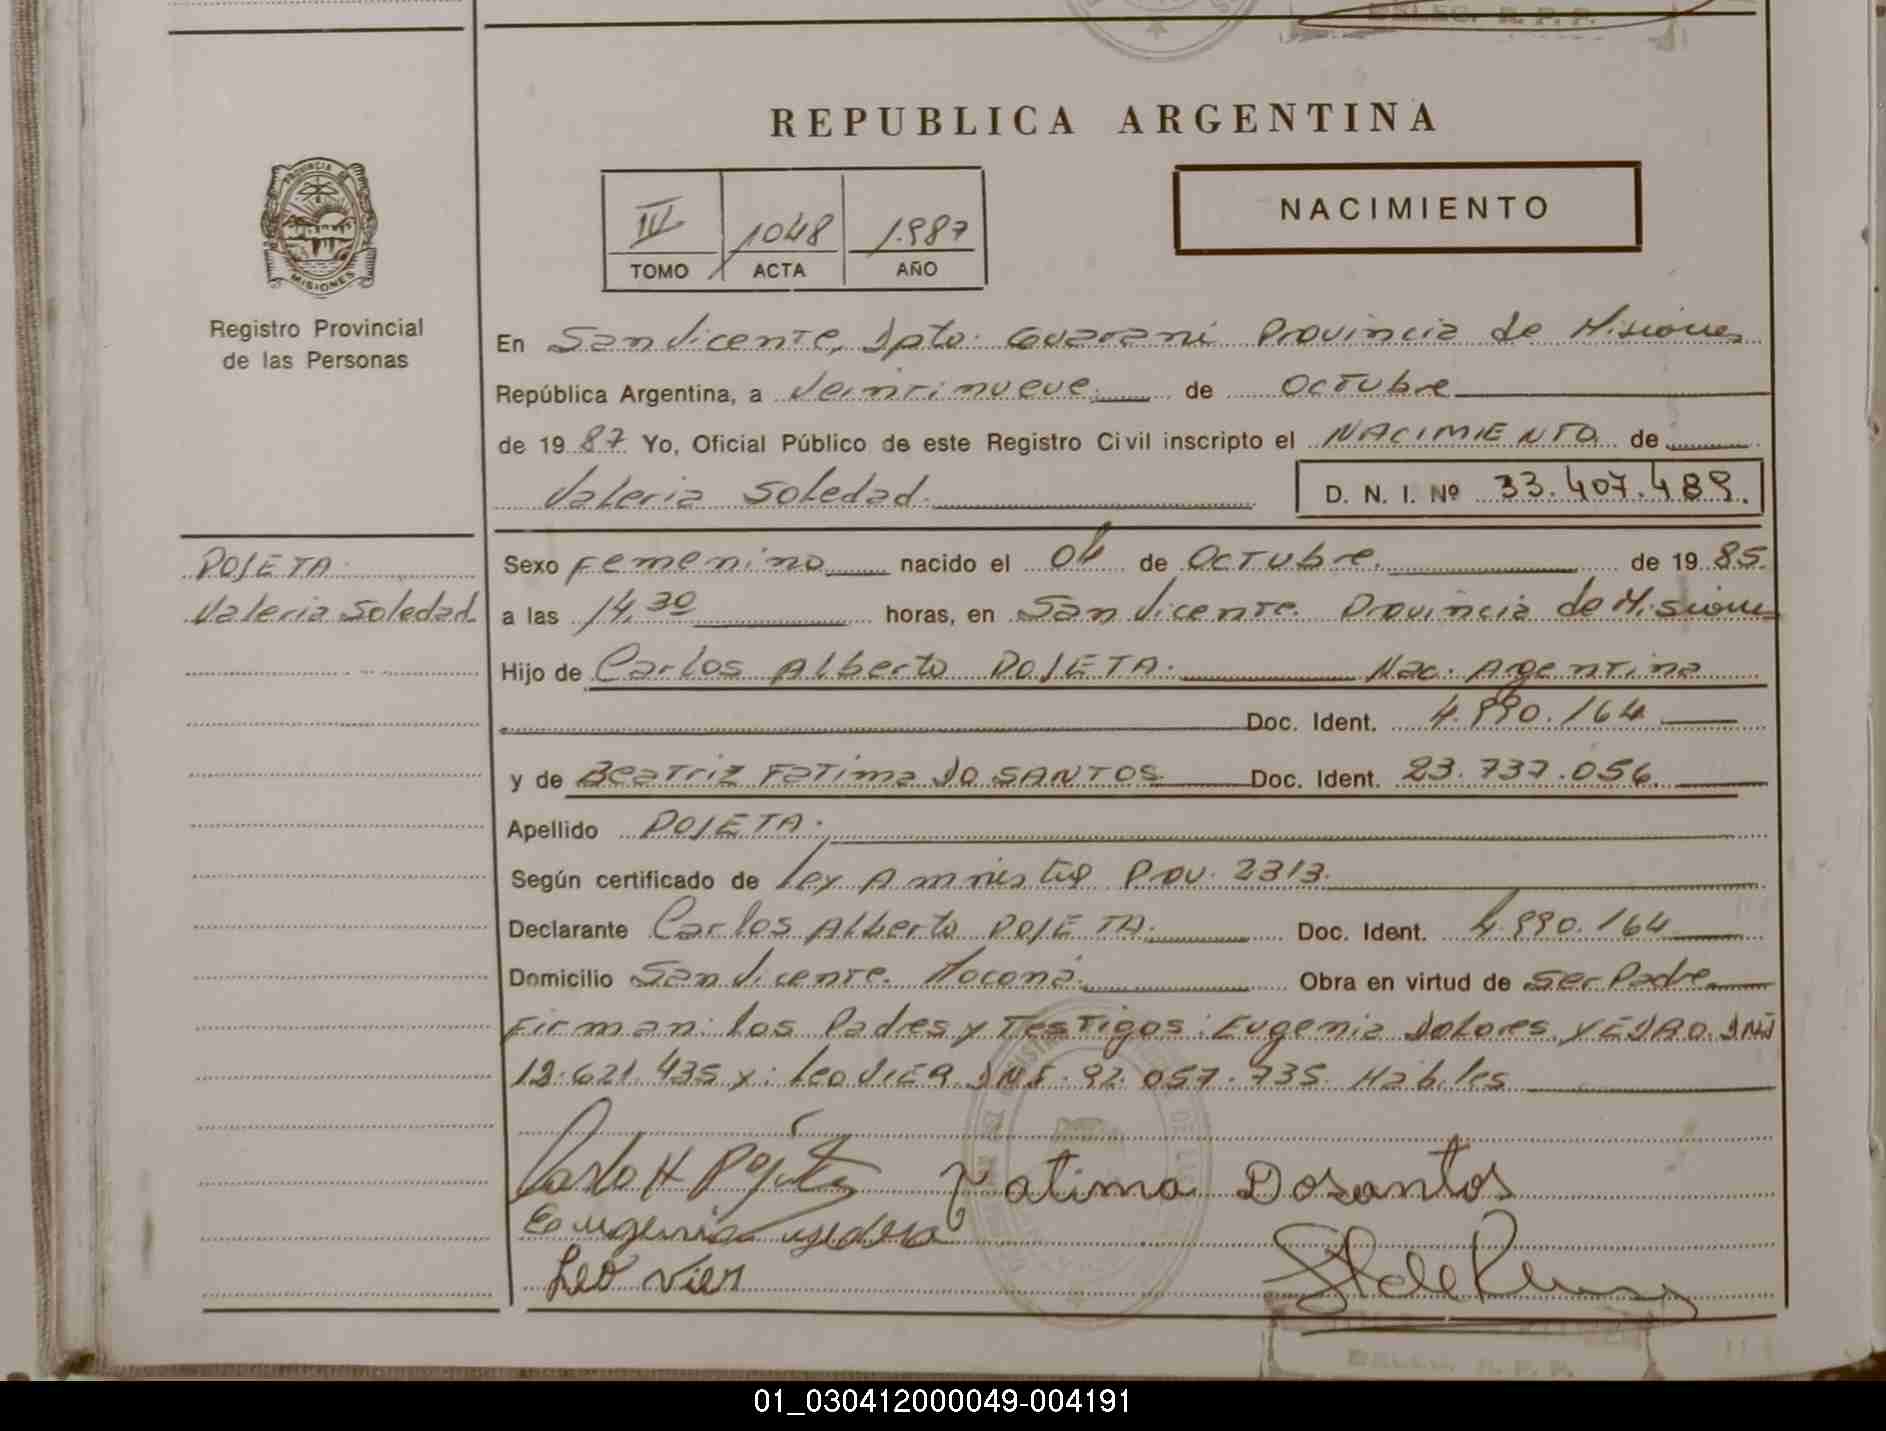 DELEG. R. P. P.
REPUBLICA ARGENTINA
PROVINCIA DE
MISIONES
Registro Provincial
de las Personas
III 1048 1.987
TOMO ACTA AÑO
NACIMIENTO
En San Vicente, Dpto. Guarani Provincia de Misiones
República Argentina, a Veintinueve de Octubre
de 19 87 Yo, Oficial Público de este Registro Civil inscripto el NACIMIENTO de
Valeria Soledad. D. N. I. Nº 33.407.489.
POJETA
Valeria Soledad
Sexo Femenino nacido el 04 de Octubre. de 19 85.
a las 14,30 horas, en San Vicente. Provincia de Misiones
Hijo de Carlos Alberto POJETA. Nac. Argentina
Doc. Ident. 4.990.164
y de Beatriz Fatima DO SANTOS Doc. Ident. 23.737.056.
Apellido POJETA.
Según certificado de Ley Prov. 2313.
Declarante Carlos Alberto POJETA. Doc. Ident. 4.990.164
Domicilio San Vicente. Moconá. Obra en virtud de ser Padre
Firman: los Padres y Testigos: Eugenia Dolores YEDRO. DNI
12.621.435 y: Leo VIERA DNI. 92.057.735. Habiles
Fatima Dosantos
Leo Vier
DELEG. R. P. P.
01_030412000049-004191